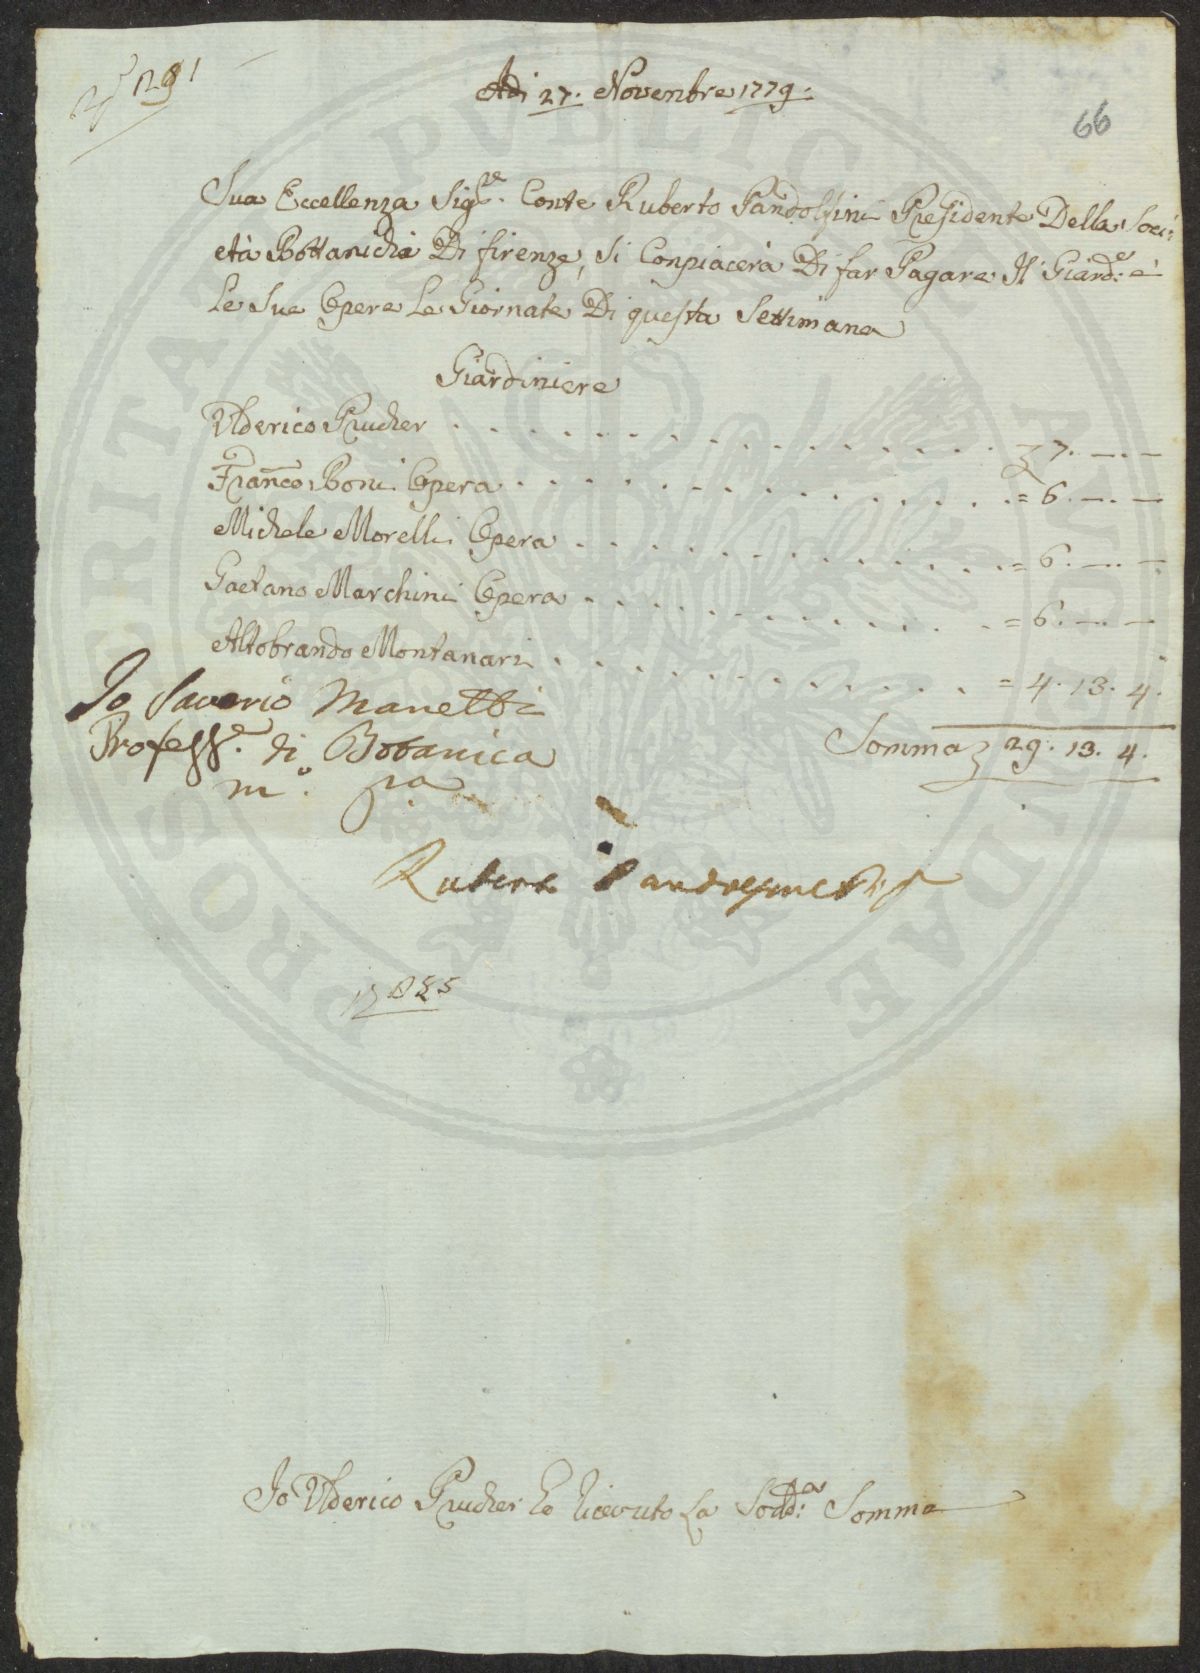 Adi 27. Novembre 1779.
66
Sua Eccellenza Sig.re Conte Ruberto Pandolfini Presidente Della Soci:
età Bottanicha Di firenze, Si Conpiacerà Di far Pagare Il Giard.e è
Le Sue Opere Le Giornate Di questa Settimana
Giardiniere
Ulderico Prucher . . . . . . . . . . . . . . . . 7. —. —
Franco. Boni Opera . . . . . . . . . . . . . . = 6. —. —
Michele Morelli Opera . . . . . . . . . . . . = 6. —. —
Gaetano Marchini Opera . . . . . . . . . . . = 6. —. —
Altobrando Montanari . . . . . . . . . . . . = 4. 13. 4.
Somma 29. 13. 4.
Io Saverio Manetti
Profess.e di Botanica
m.o pa
Ruberto Pandolfini
Io Ulderico Prucher ho riceuuto La Sodd.a Somma
PROSPERITATI PUBLICAE AUGENDAE